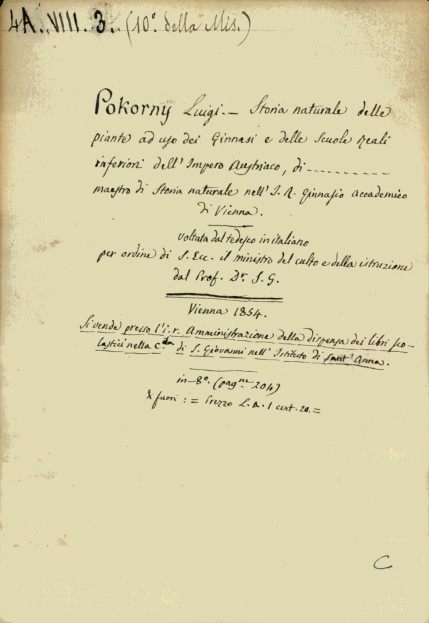 4A. VIII. 3. (10.° della Mis.)
Pokorny Luigi. — Storia naturale delle
piante ad uso dei Ginnasi e delle Scuole reali
inferiori dell'Impero Austriaco, di ----------
maestro di Storia naturale nell'I. R. Ginnasio Accademico
di Vienna.
voltata dal tedesco in italiano
per ordine di S. Ecc. il ministro del culto e della istruzione
dal Prof. Dr. J. G.
Vienna 1854.
Si vende presso l'i. r. Amministrazione della dispensa dei libri sco-
lastici nella c.da di S. Giovanni nell'Istituto di Sant'Anna.
in-8.° (pag.ne 204)
& fuori : = Prezzo L. A. 1 cent. 20. =
C